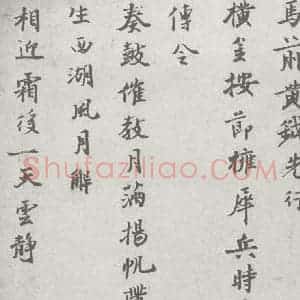 馬前黃鉞先行
橫金按節擁犀兵時
傳令
奏鼓催教月滿揚帆
生西湖風月解
相近霜後一天雲靜
Shufaziliao.COM